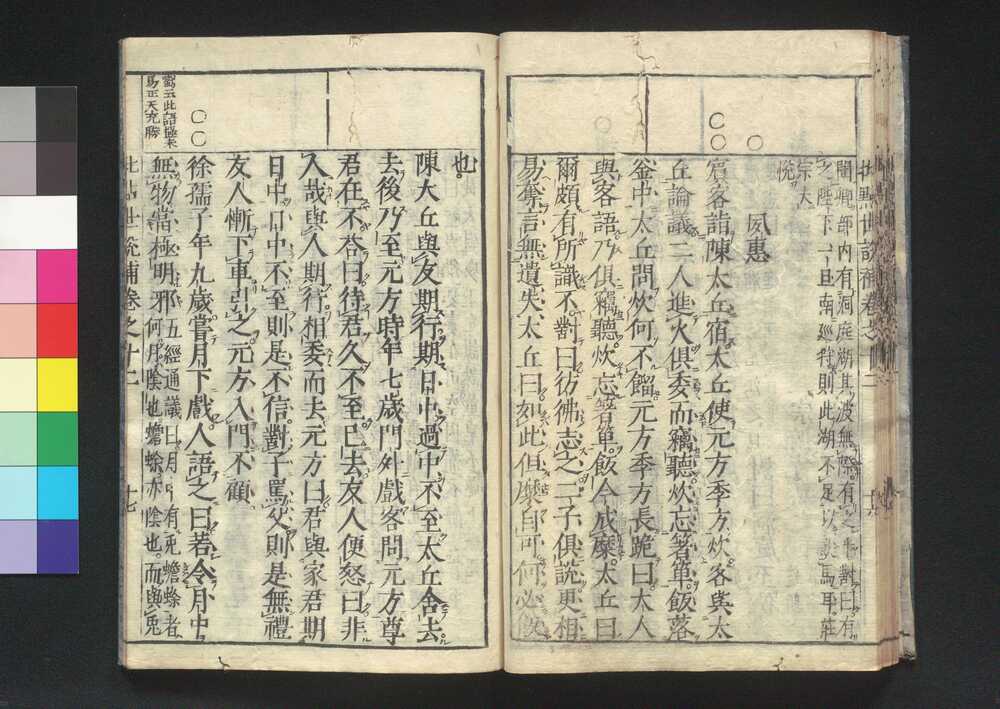 批點世説補卷之十二
聞卿部内有洞庭湖其波無際有之乎對曰有
之陛下一旦南廵狩則此湖不足以飲馬耳莊
宗大
悅
夙惠
賓客詣陳太丘宿太丘使元方季方炊客與太
丘論議二人進火俱委而竊聽炊忘箸箄飯落
釜中太丘問炊何不餾元方季方長跪曰大人
與客語乃俱竊聽炊忘箸箄飯今成糜太丘曰
爾頗有所識不對曰彷彿志之二子俱說更相
易奪言無遺失太丘曰如此但糜自可何必飯
也
陳太丘與友期行期日中過中不至太丘舍去
去後乃至元方時年七歲門外戲客問元方尊
君在不荅曰待君久不至已去友人便怒曰非
人哉與人期行相委而去元方曰君與家君期
日中日中不至則是不信對子罵父則是無禮
友人慚下車引之元方入門不顧
徐孺子年九歲嘗月下戲人語之曰若令月中
無物當極明邪五經通議曰月中有兎蟾蜍者
何月陰也蟾蜍亦陰也而與兎
批點世說補卷之十二
十七